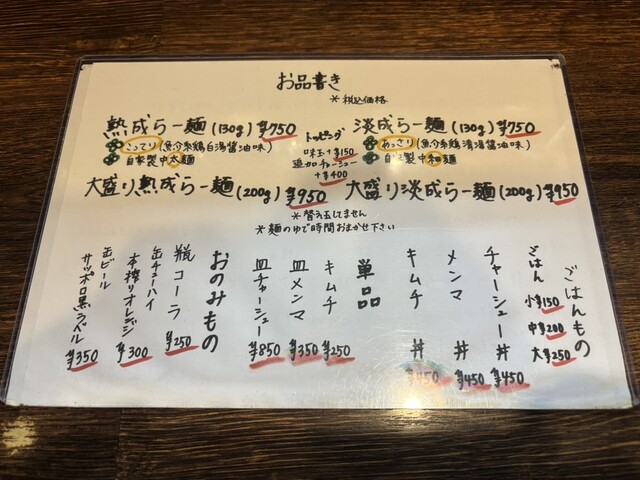 お品書き
※税込価格
熟成らー麺(130g)¥750
こってり(魚介系鶏白湯醤油味)
自家製中太麺
トッピング
味玉+¥150
追加チャーシュー
+¥400
淡成らー麺(130g)¥750
あっさり(魚介系鶏清湯醤油味)
自家製中細麺
大盛り熟成らー麺(200g)¥950
大盛り淡成らー麺(200g)¥950
※替え玉してません
※麺のゆで時間おまかせ下さい
ごはんもの
ごはん 小¥150
中¥200
大¥250
チャーシュー丼 ¥450
メンマ丼 ¥450
キムチ丼 ¥450
単品
キムチ ¥250
皿メンマ ¥350
皿チャーシュー ¥850
おのみもの
瓶コーラ ¥250
缶チューハイ
本搾りオレンジ ¥300
缶ビール
サッポロ黒ラベル ¥350